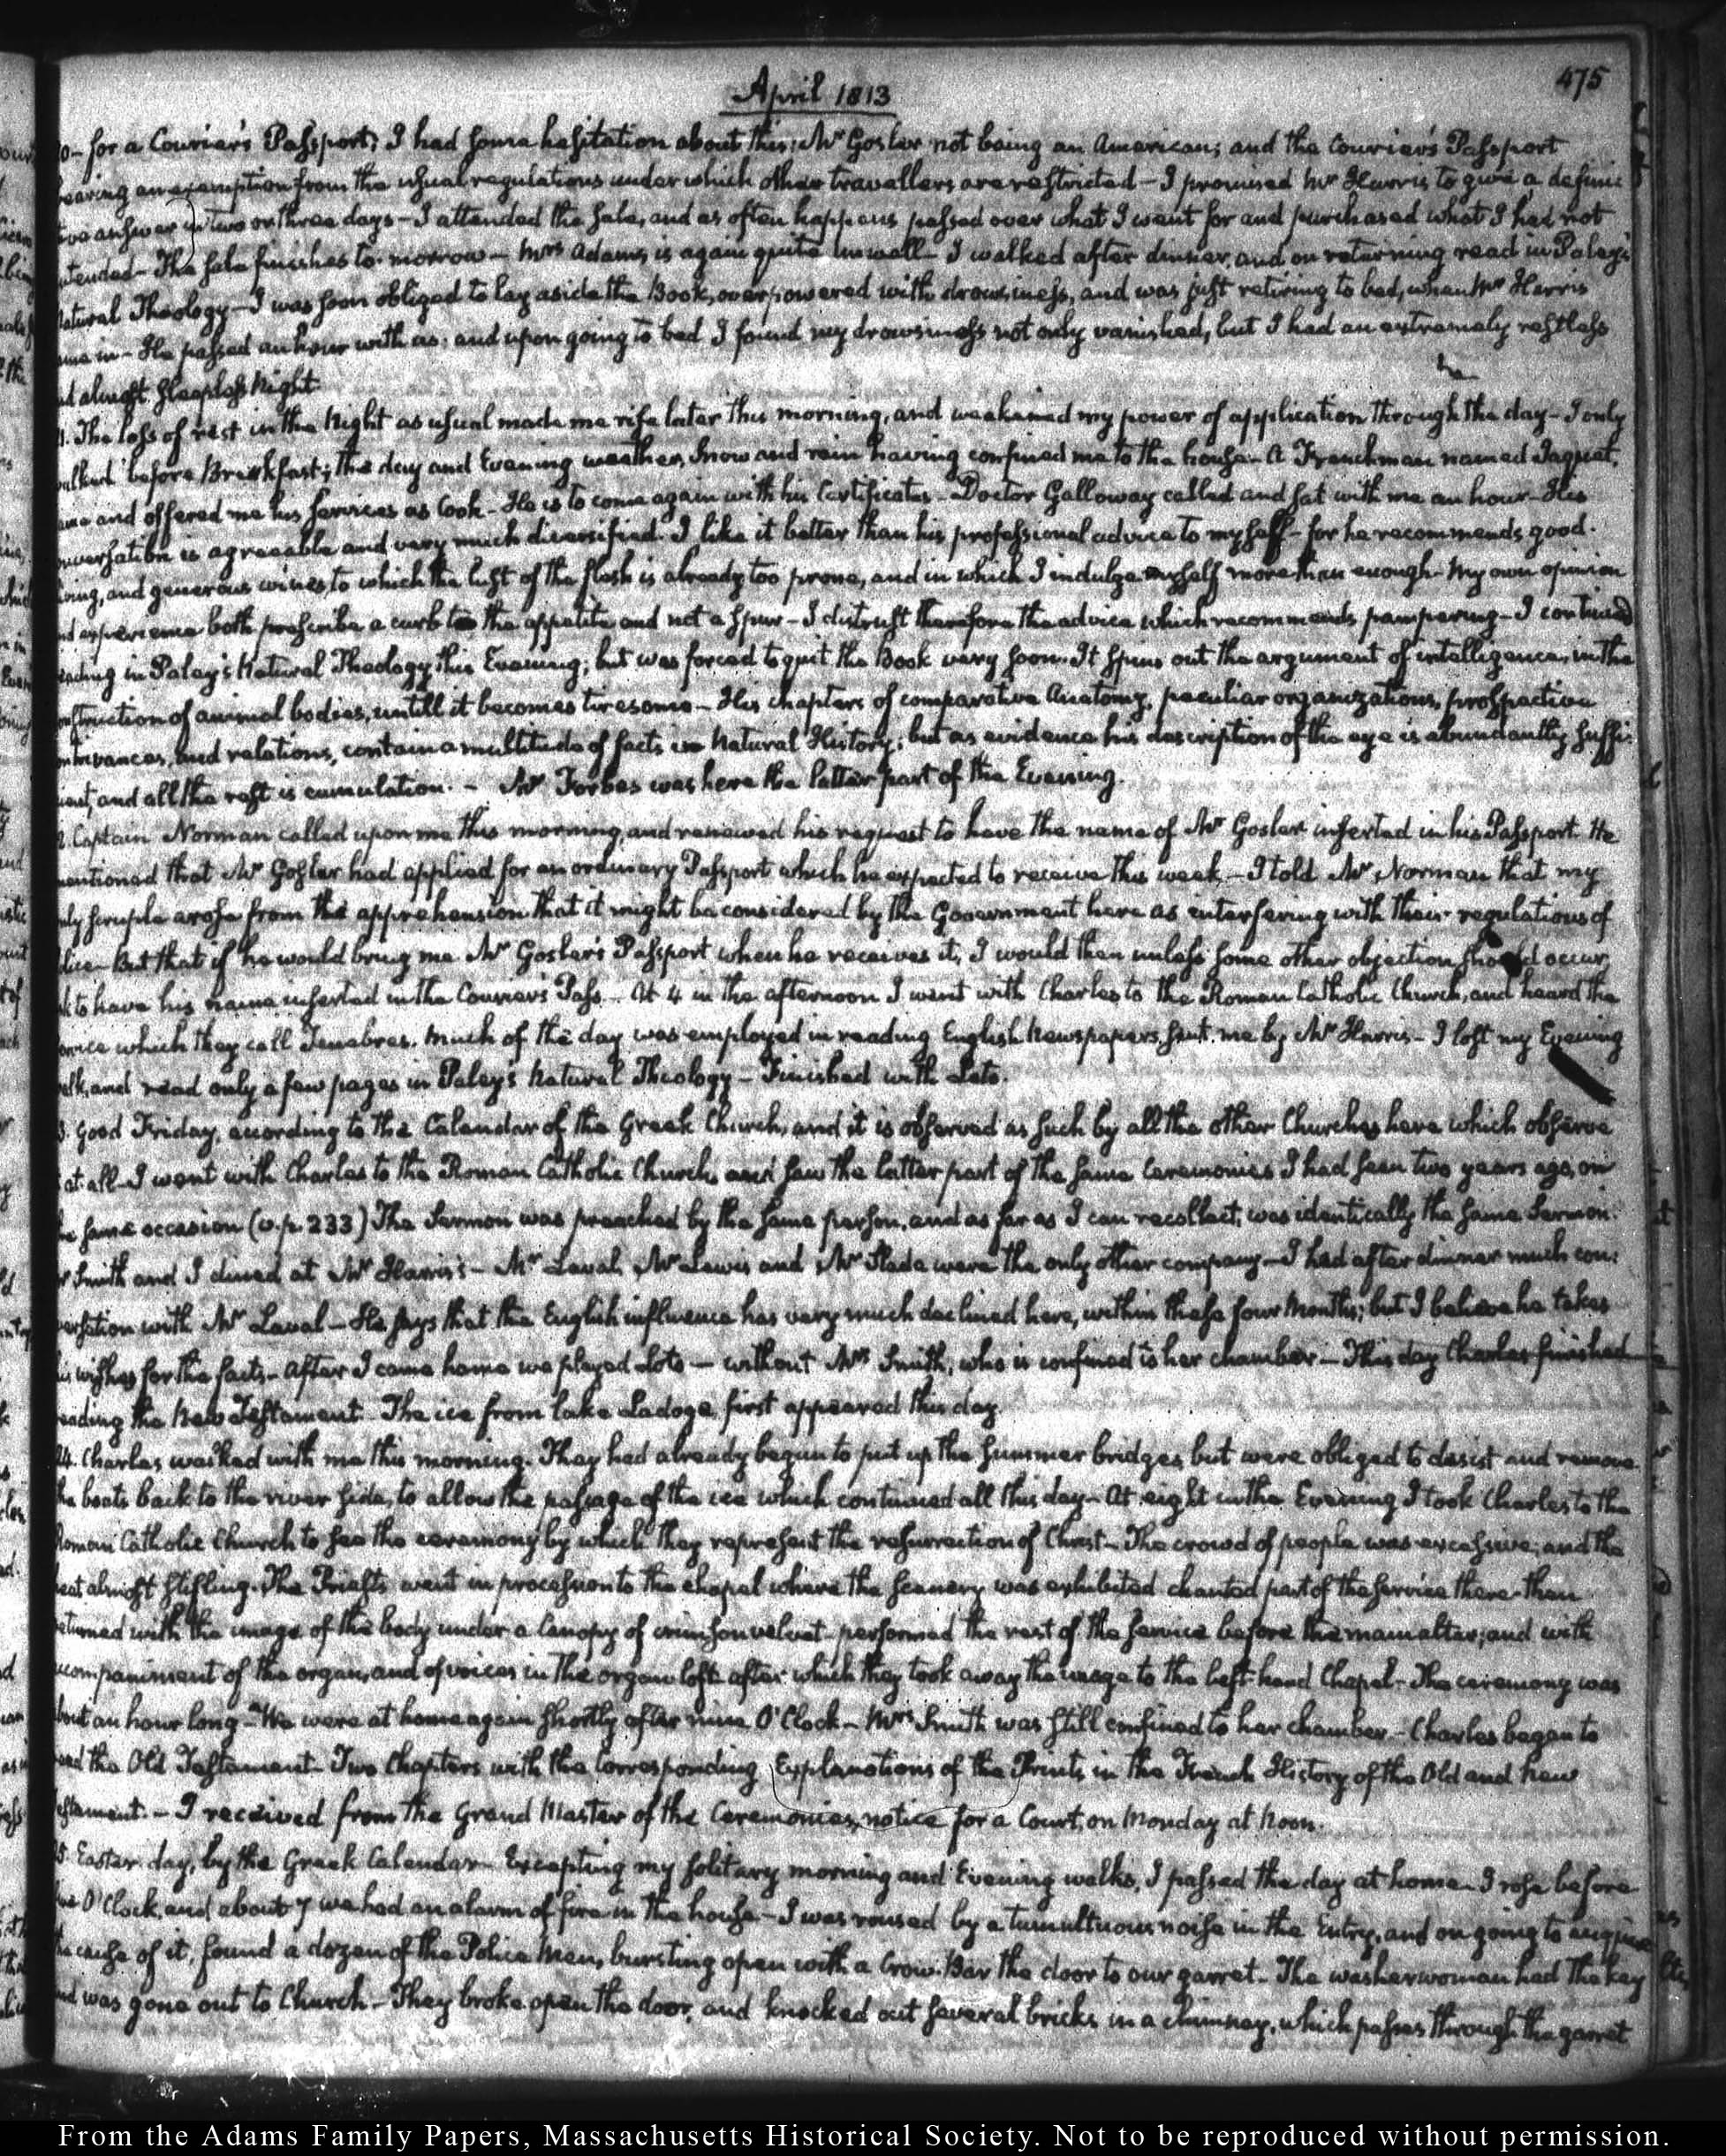 April 1813
475
for a Courier's Passport; I had some hesitation about this: Mr Gosler not being an American; and the Courier's Passport
bearing an exemption from the usual regulations under which other travellers are restricted – I promised Mr Harris to give a defini-
tive answer in two or three days – I attended the sale, and as often happens passed over what I went for and purchased what I had not
intended – The sale finishes to-morrow – Mrs Adams is again quite unwell – I walked after dinner, and on returning read in Paley's
Natural Theology – I was soon obliged to lay aside the Book, overpowered with drowsiness, and was just retiring to bed, when Mr Harris
came in – He passed an hour with us; and upon going to bed I found my drowsiness not only vanished, but I had an extremely restless
and almost sleepless Night
21. The loss of rest in the Night as usual made me rise later this morning, and weakened my power of application through the day – I only
walked before Breakfast; the day and Evening weather, Snow and rain having confined me to the house – A Frenchman named Jaquet,
came and offered me his services as Cook – He is to come again with his Certificates – Doctor Galloway called and sat with me an hour – His
conversation is agreeable and very much diversified. I like it better than his professional advice to myself – for he recommends good
living, and generous wines, to which the lust of the flesh is already too prone, and in which I indulge myself more than enough – My own opinion
and experience both prescribe a curb to the appetite and not a spur – I distrust therefore the advice which recommends pampering – I continued
reading in Paley's Natural Theology this Evening; but was forced to quit the Book very soon. It spins out the argument of intelligence, in the
construction of animal bodies, untill it becomes tiresome – His chapters of comparative Anatomy, peculiar organizations, prospective
contrivances, and relations, contain a multitude of facts in Natural History; but as evidence his description of the eye is abundantly suffi-
cient, and all the rest is cumulation. – Mr Forbes was here the latter part of the Evening.
22. Captain Norman called upon me this morning, and renewed his request to have the name of Mr Gosler inserted in his Passport. He
mentioned that Mr Gosler had applied for an ordinary Passport which he expected to receive this week – I told Mr Norman that my
only scruple arose from the apprehension that it might be considered by the Government here as interfering with their regulations of
Police – But that if he would bring me Mr Gosler's Passport when he receives it, I would then unless some other objection should occur,
ask to have his name inserted in the Courier's Pass. – At 4 in the afternoon I went with Charles to the Roman Catholic Church, and heard the
service which they call Tenebres. Much of the day was employed in reading English Newspapers, sent me by Mr Harris – I lost my Evening
walk, and read only a few pages in Paley's Natural Theology – Finished with Loto.
23. Good Friday, according to the Calendar of the Greek Church, and it is observed as such by all the other Churches here which observe
it at all – I went with Charles to the Roman Catholic Church, and saw the latter part of the same Ceremonies I had seen two years ago, on
the same occasion (v. p. 233) The Sermon was preached by the same person, and as far as I can recollect, was identically the same Sermon.
Mr Smith and I dined at Mr Harris's – Mr Laval, Mr Lewis and Mr Slade were the only other company – I had after dinner much con-
versation with Mr Laval – He says that the English influence has very much declined here, within these four Months; but I believe he takes
his wishes for the facts – After I came home we played Loto – without Mrs Smith, who is confined to her chamber – This day Charles finished
reading the New Testament. The ice from lake Ladoga first appeared this day.
24. Charles walked with me this morning. They had already begun to put up the Summer bridges but were obliged to desist and remove
the boats back to the river side, to allow the passage of the ice which continued all this day – At eight in the Evening I took Charles to the
Roman Catholic Church to see the ceremony by which they represent the resurrection of Christ – The crowd of people was excessive, and the
heat almost stifling. The Priests went in procession to the chapel where the Scenery was exhibited chanted part of the service there – then
returned with the image of the body under a Canopy of crimson velvet – performed the rest of the service before the main altar; and with
accompaniment of the organ, and of voices in the organ loft after which they took away the image to the left hand Chapel – The ceremony was
about an hour long – We were at home again shortly after nine O'Clock – Mrs Smith was still confined to her chamber – Charles began to
read the Old Testament – Two Chapters with the Corresponding Explanations of the Prints in the French History of the Old and New
Testament. – I received from the Grand Master of the Ceremonies, notice for a Court, on Monday at Noon.
25. Easter day, by the Greek Calendar – Excepting my solitary morning and Evening walks, I passed the day at home – I rose before
O'Clock, and about 7 we had an alarm of fire in the house – I was roused by a tumultuous noise in the Entry, and on going to enquire
the cause of it, found a dozen of the Police Men, bursting open with a Crow-Bar the door to our garret – The washerwoman had the key
and was gone out to Church – They broke open the door, and knocked out several bricks in a chimney, which passes through the garret
From the Adams Family Papers, Massachusetts Historical Society. Not to be reproduced without permission.